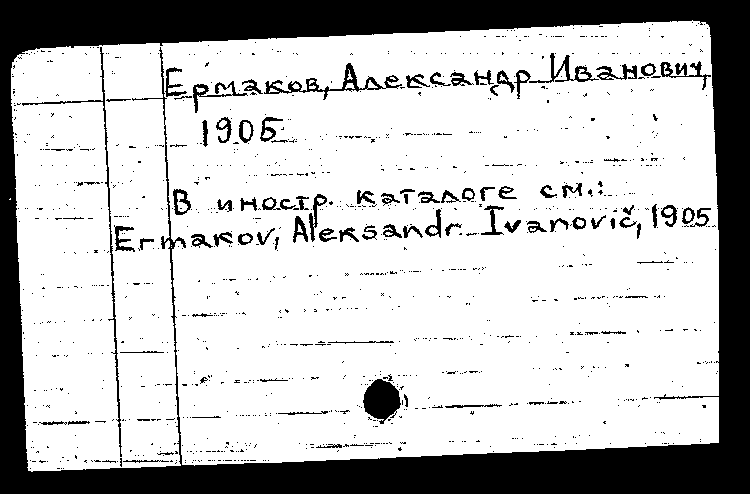 Ермаков, Александр Иванович,
1905
В иностр. каталоге см.:
Ermakov, Aleksandr Ivanovič, 1905